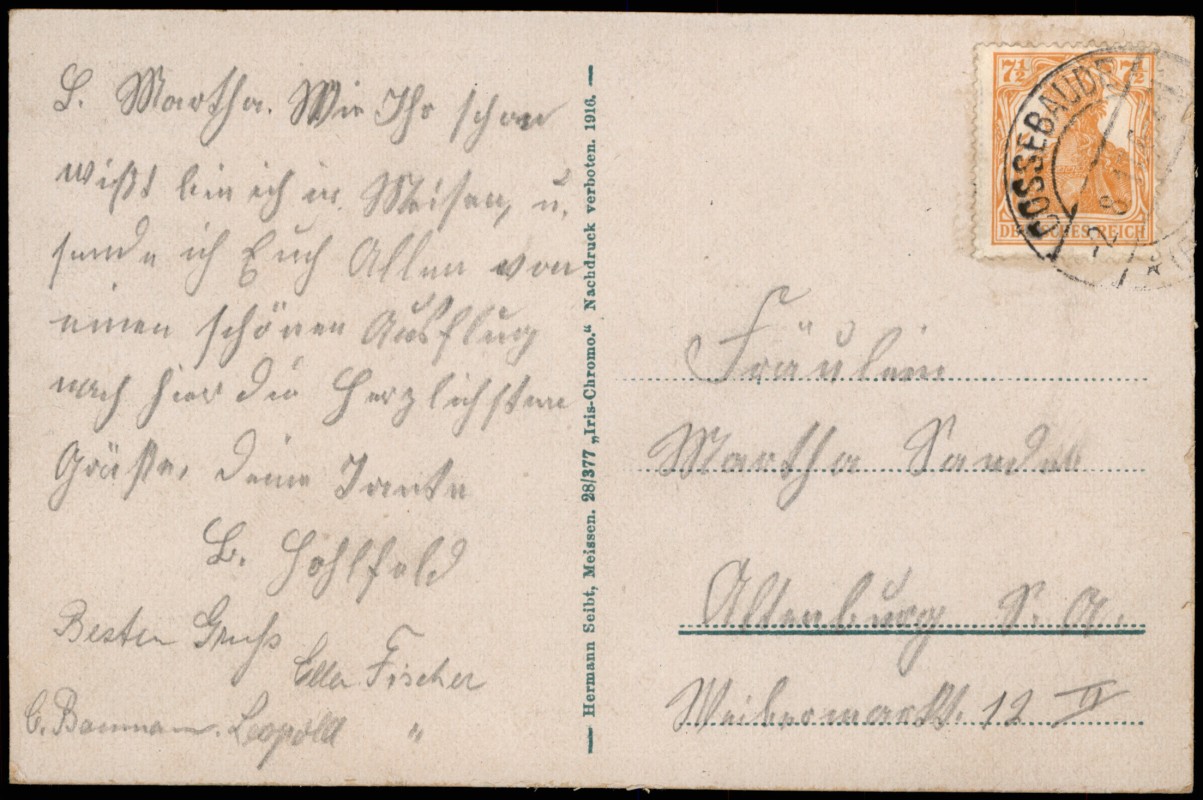 L. Martha. Wie Ihr schon
wißt bin ich in Meisen, u.
sende ich Euch Allen von
einen schönen Ausflug
nach hier die Herzlichsten
Grüße, deine Tante
L. Hohlfeld
Besten Gruß
Ella Fischer
Leopold "
Hermann Seibt, Meissen. 28/377 „Iris-Chromo.“ Nachdruck verboten. 1916.
7½ 7½
DEUTSCHES REICH
COSSEBAUDE
Fräulein
Martha Sander
Altenburg S. A.
Weibermarkt. 12 II